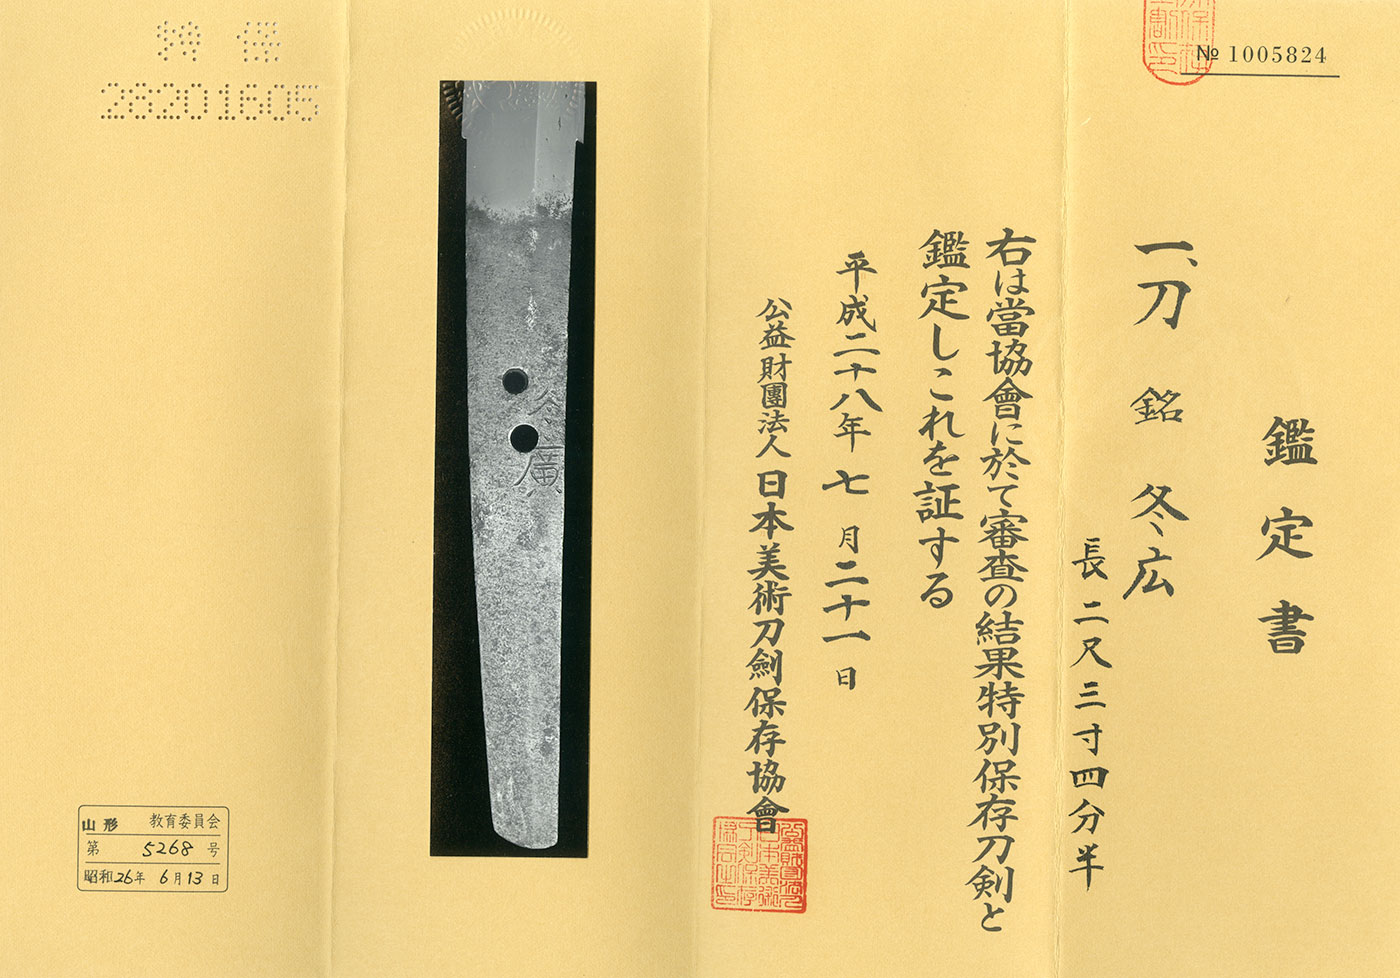 № 1005824
鑑定書
一、刀 銘 冬広
長二尺三寸四分半
右は當協會に於て審査の結果特別保存刀剣と
鑑定しこれを証する
平成二十八年七月二十一日
公益財團法人日本美術刀劍保存協會
冬廣
特保
28201605
山形 教育委員会
第 5268 号
昭和26年 6月13日